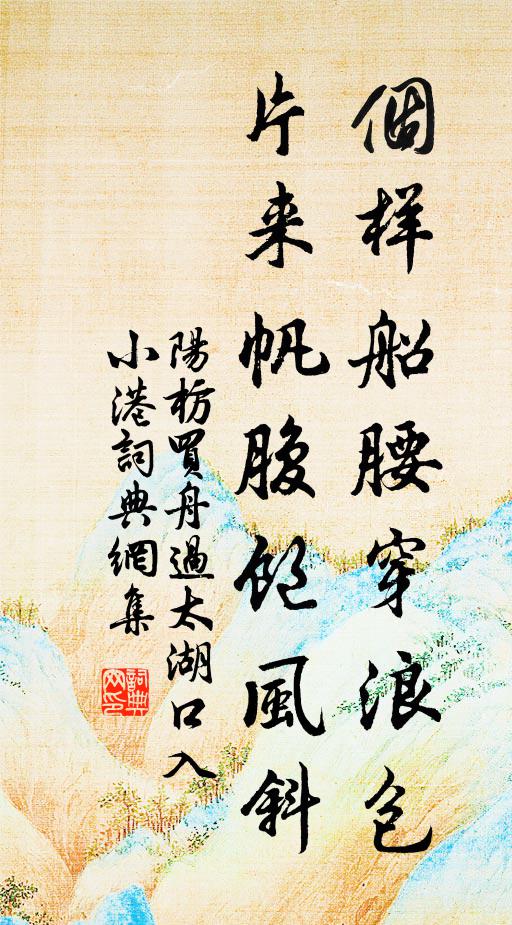 個样船腰穿浪包
片来帆腹饱風斜
陽枋買舟過太湖口入
小港詞典網集
詞典網印